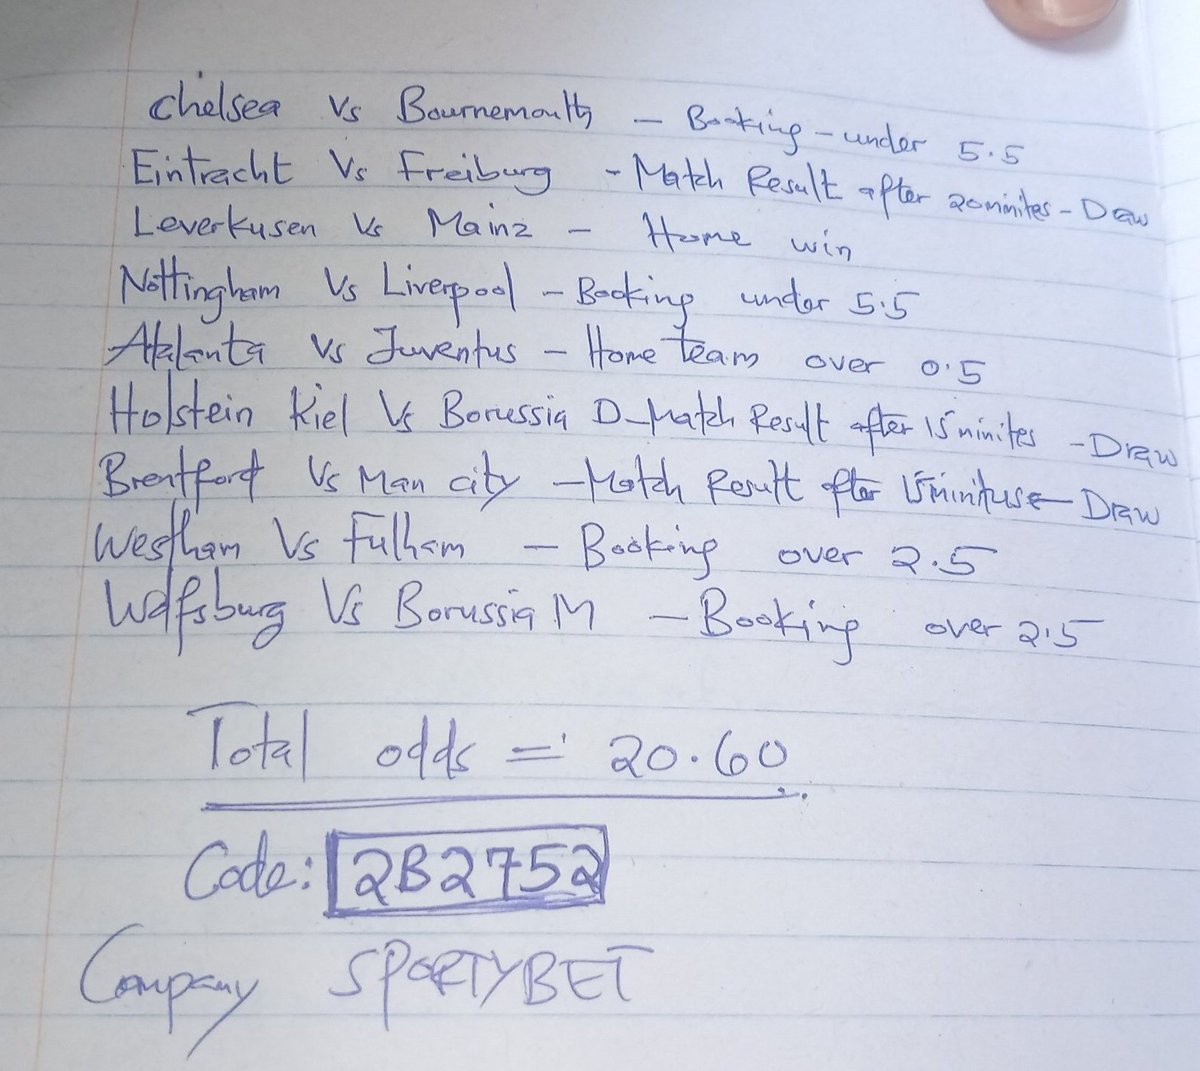 Chelsea Vs Bournemouth - Booking - under 5.5
Eintracht Vs Freiburg - Match Result after 20 minites - Draw
Leverkusen Vs Mainz - Home win
Nottingham Vs Liverpool - Booking under 5.5
Atalanta Vs Juventus - Home Team over 0.5
Holstein Kiel Vs Borussia D - Match Result after 15 minites - Draw
Brentford Vs Man city - Match Result after 15 minituse - Draw
Westham Vs Fulham - Booking over 2.5
Wolfsburg Vs Borussia M - Booking over 2.5
Total odds = 20.60
Code: 2B2752
Company SPORTYBET